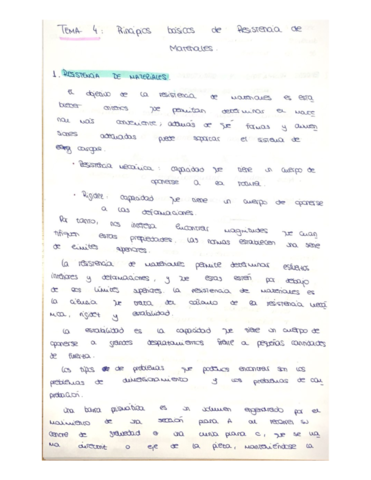 TEMA 4: Principios básicos de Resistencia de
Materiales.
1. RESISTENCIA DE MATERIALES
El objetivo de la resistencia de materiales es esta
blecer criterios que permitan determinar el mate
rial más conveniente, además de qué formas y dimen
siones adecuadas puede soportar el sistema de
cargas.
· Resistencia mecánica: capacidad que tiene un cuerpo de
oponerse a la rotura
· Rigidez: capacidad que tiene un cuerpo de oponerse
a las deformaciones.
Por tanto, nos interesa encontrar magnitudes que cuan
tifiquen estas propiedades. Las normas establecen una serie
de límites superiores.
La resistencia de materiales permite determinar esfuerzos
interiores y deformaciones, y que estas estén por debajo
de sus límites superiores. La resistencia de materiales es
la ciencia que trata del cálculo de la resistencia mecá
nica, rigidez y estabilidad.
La estabilidad es la capacidad que tiene un cuerpo de
oponerse a grandes desplazamientos frente a pequeñas cantidades
de fuerza.
Los tipos de problemas que podemos encontrar son los
problemas de dimensionamiento y los problemas de com
probación.
Una barra prismática es un volumen engendrado por el
movimiento de una sección plana A al recorrer su
centro de gravedad G una curva plana C, que se llama
directriz o eje de la pieza, manteniéndose la